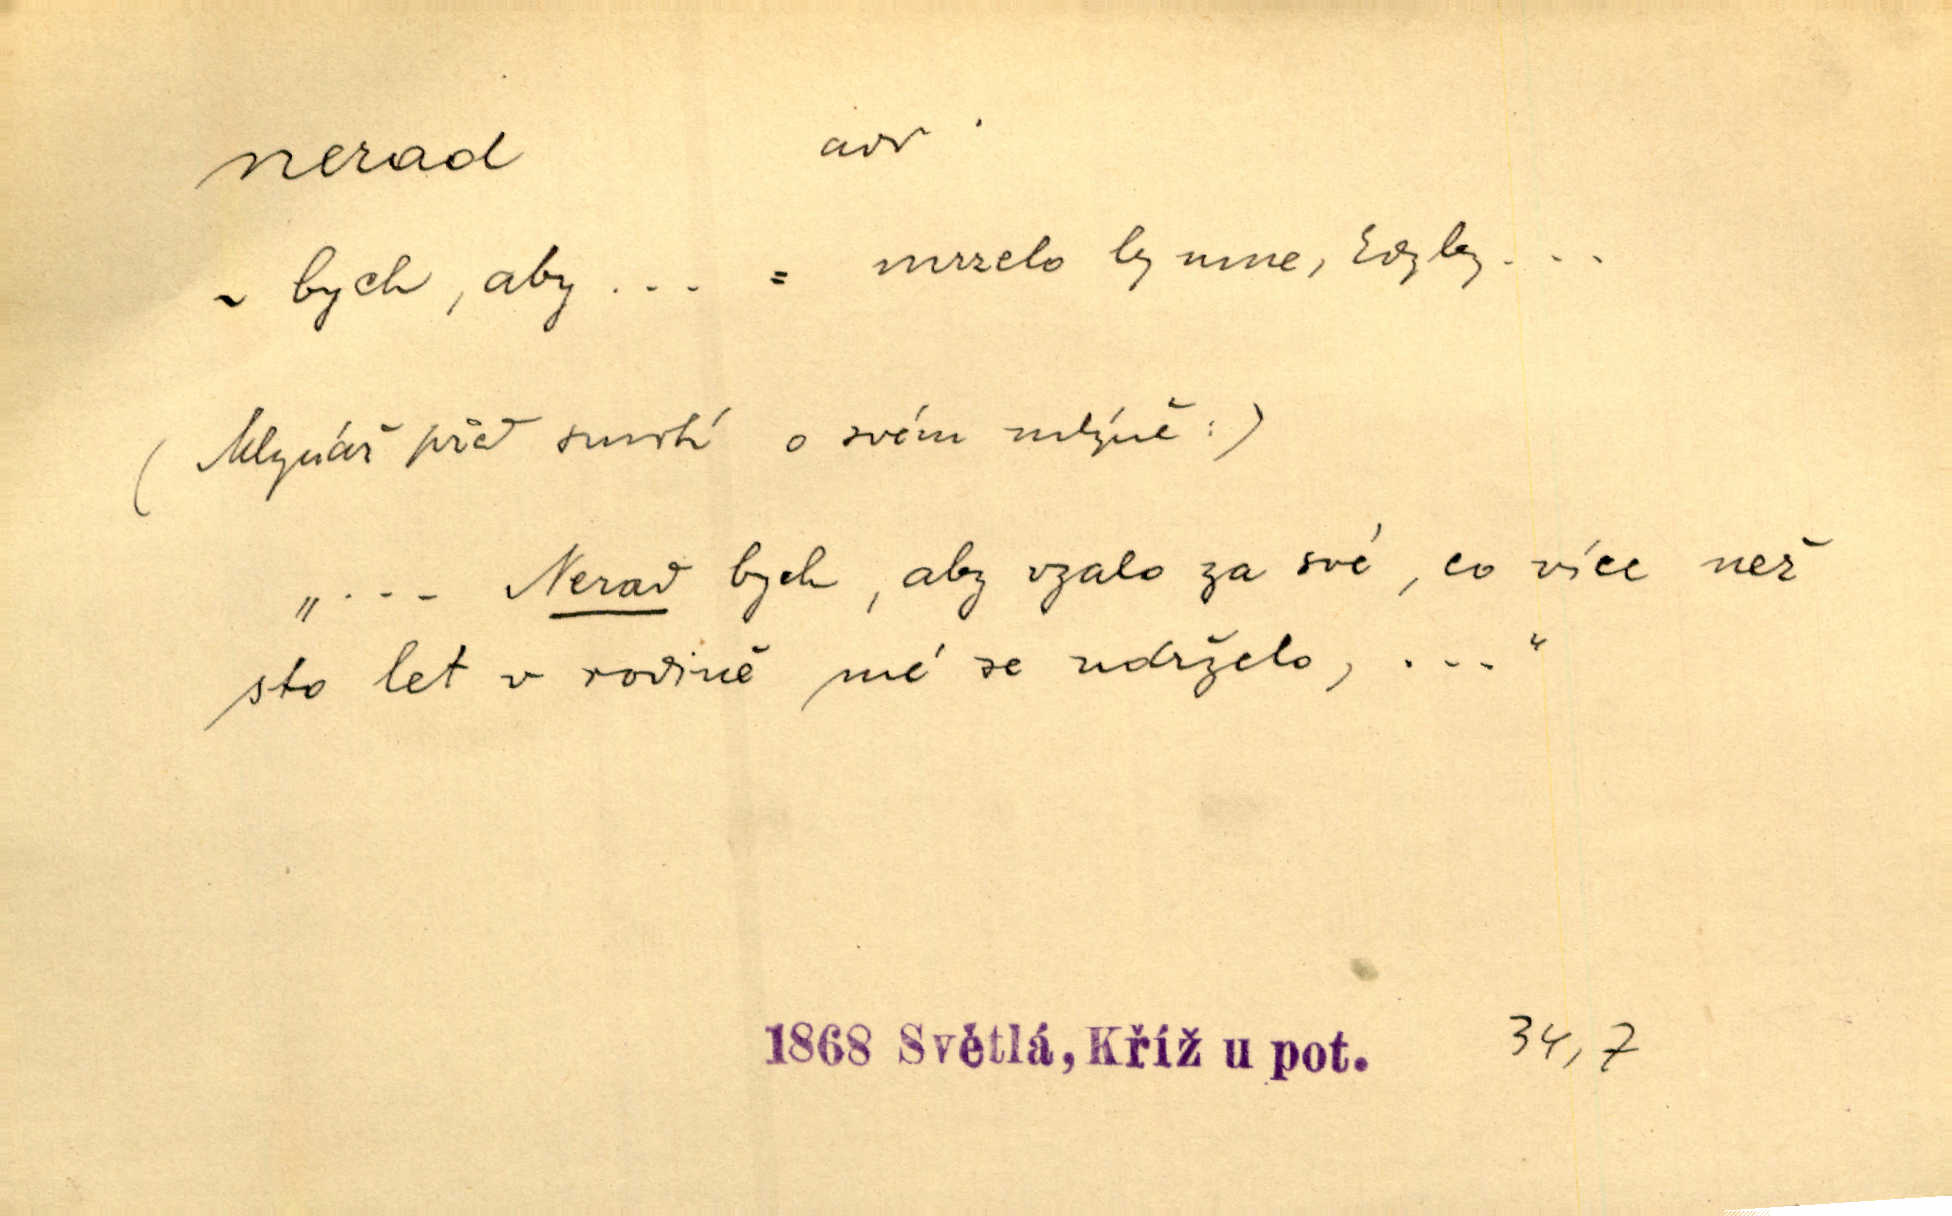 nerad adv
~ bych, aby ... = mrzelo by mne, kdyby ...
(Mlynář před smrtí o svém mlýně:)
„... Nerad bych, aby vzalo za své, co více než
sto let v rodině mé se udrželo, ...“
1868 Světlá, Kříž u pot. 34, 7